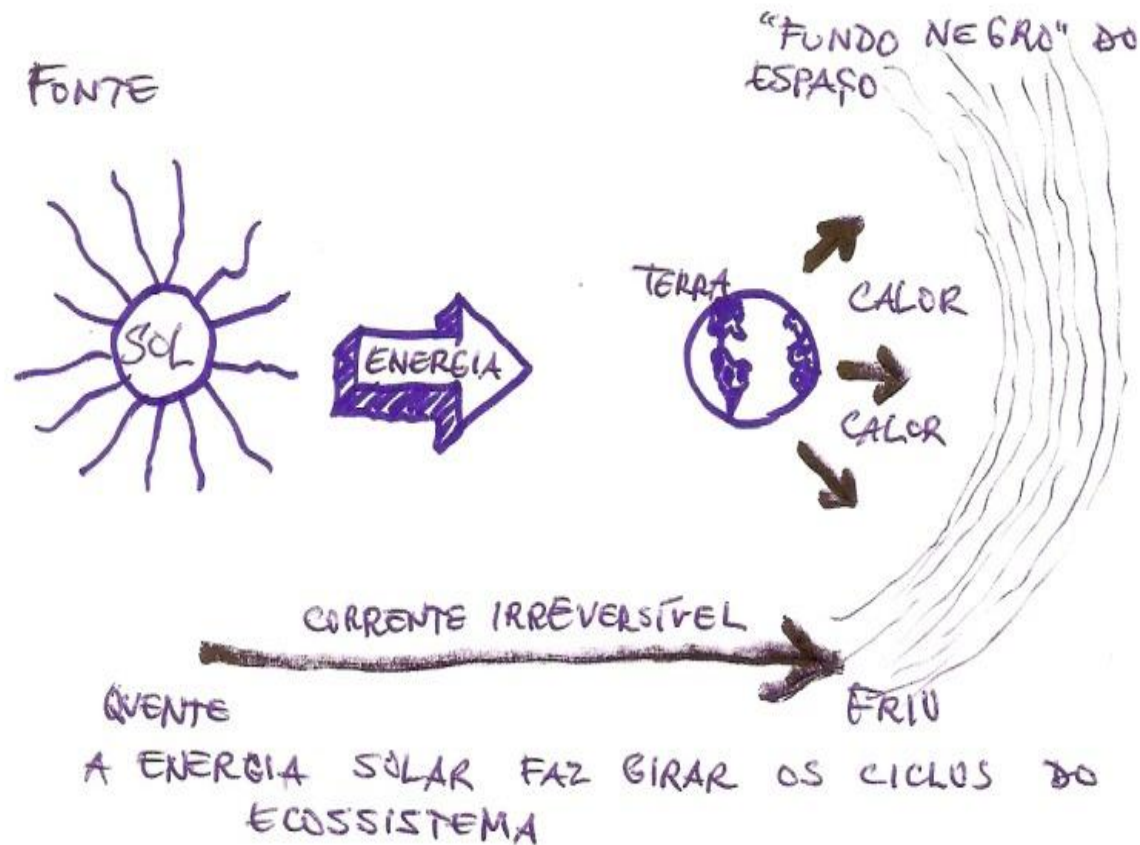 FONTE
"FUNDO NEGRO" DO
ESPAÇO
SOL
ENERGIA
TERRA
CALOR
CALOR
CORRENTE IRREVERSÍVEL
QUENTE
FRIO
A ENERGIA SOLAR FAZ GIRAR OS CICLOS DO
ECOSSISTEMA